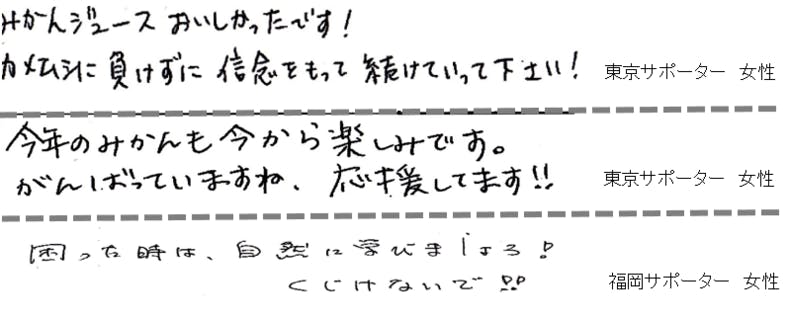 みかんジュース おいしかったです!
カメムシに負けずに信念をもって続けていって下さい! 東京サポーター 女性
今年のみかんも今から楽しみです。
がんばっていますね、応援してます!! 東京サポーター 女性
困った時は、自然に学びましょう!
くじけないで!! 福岡サポーター 女性